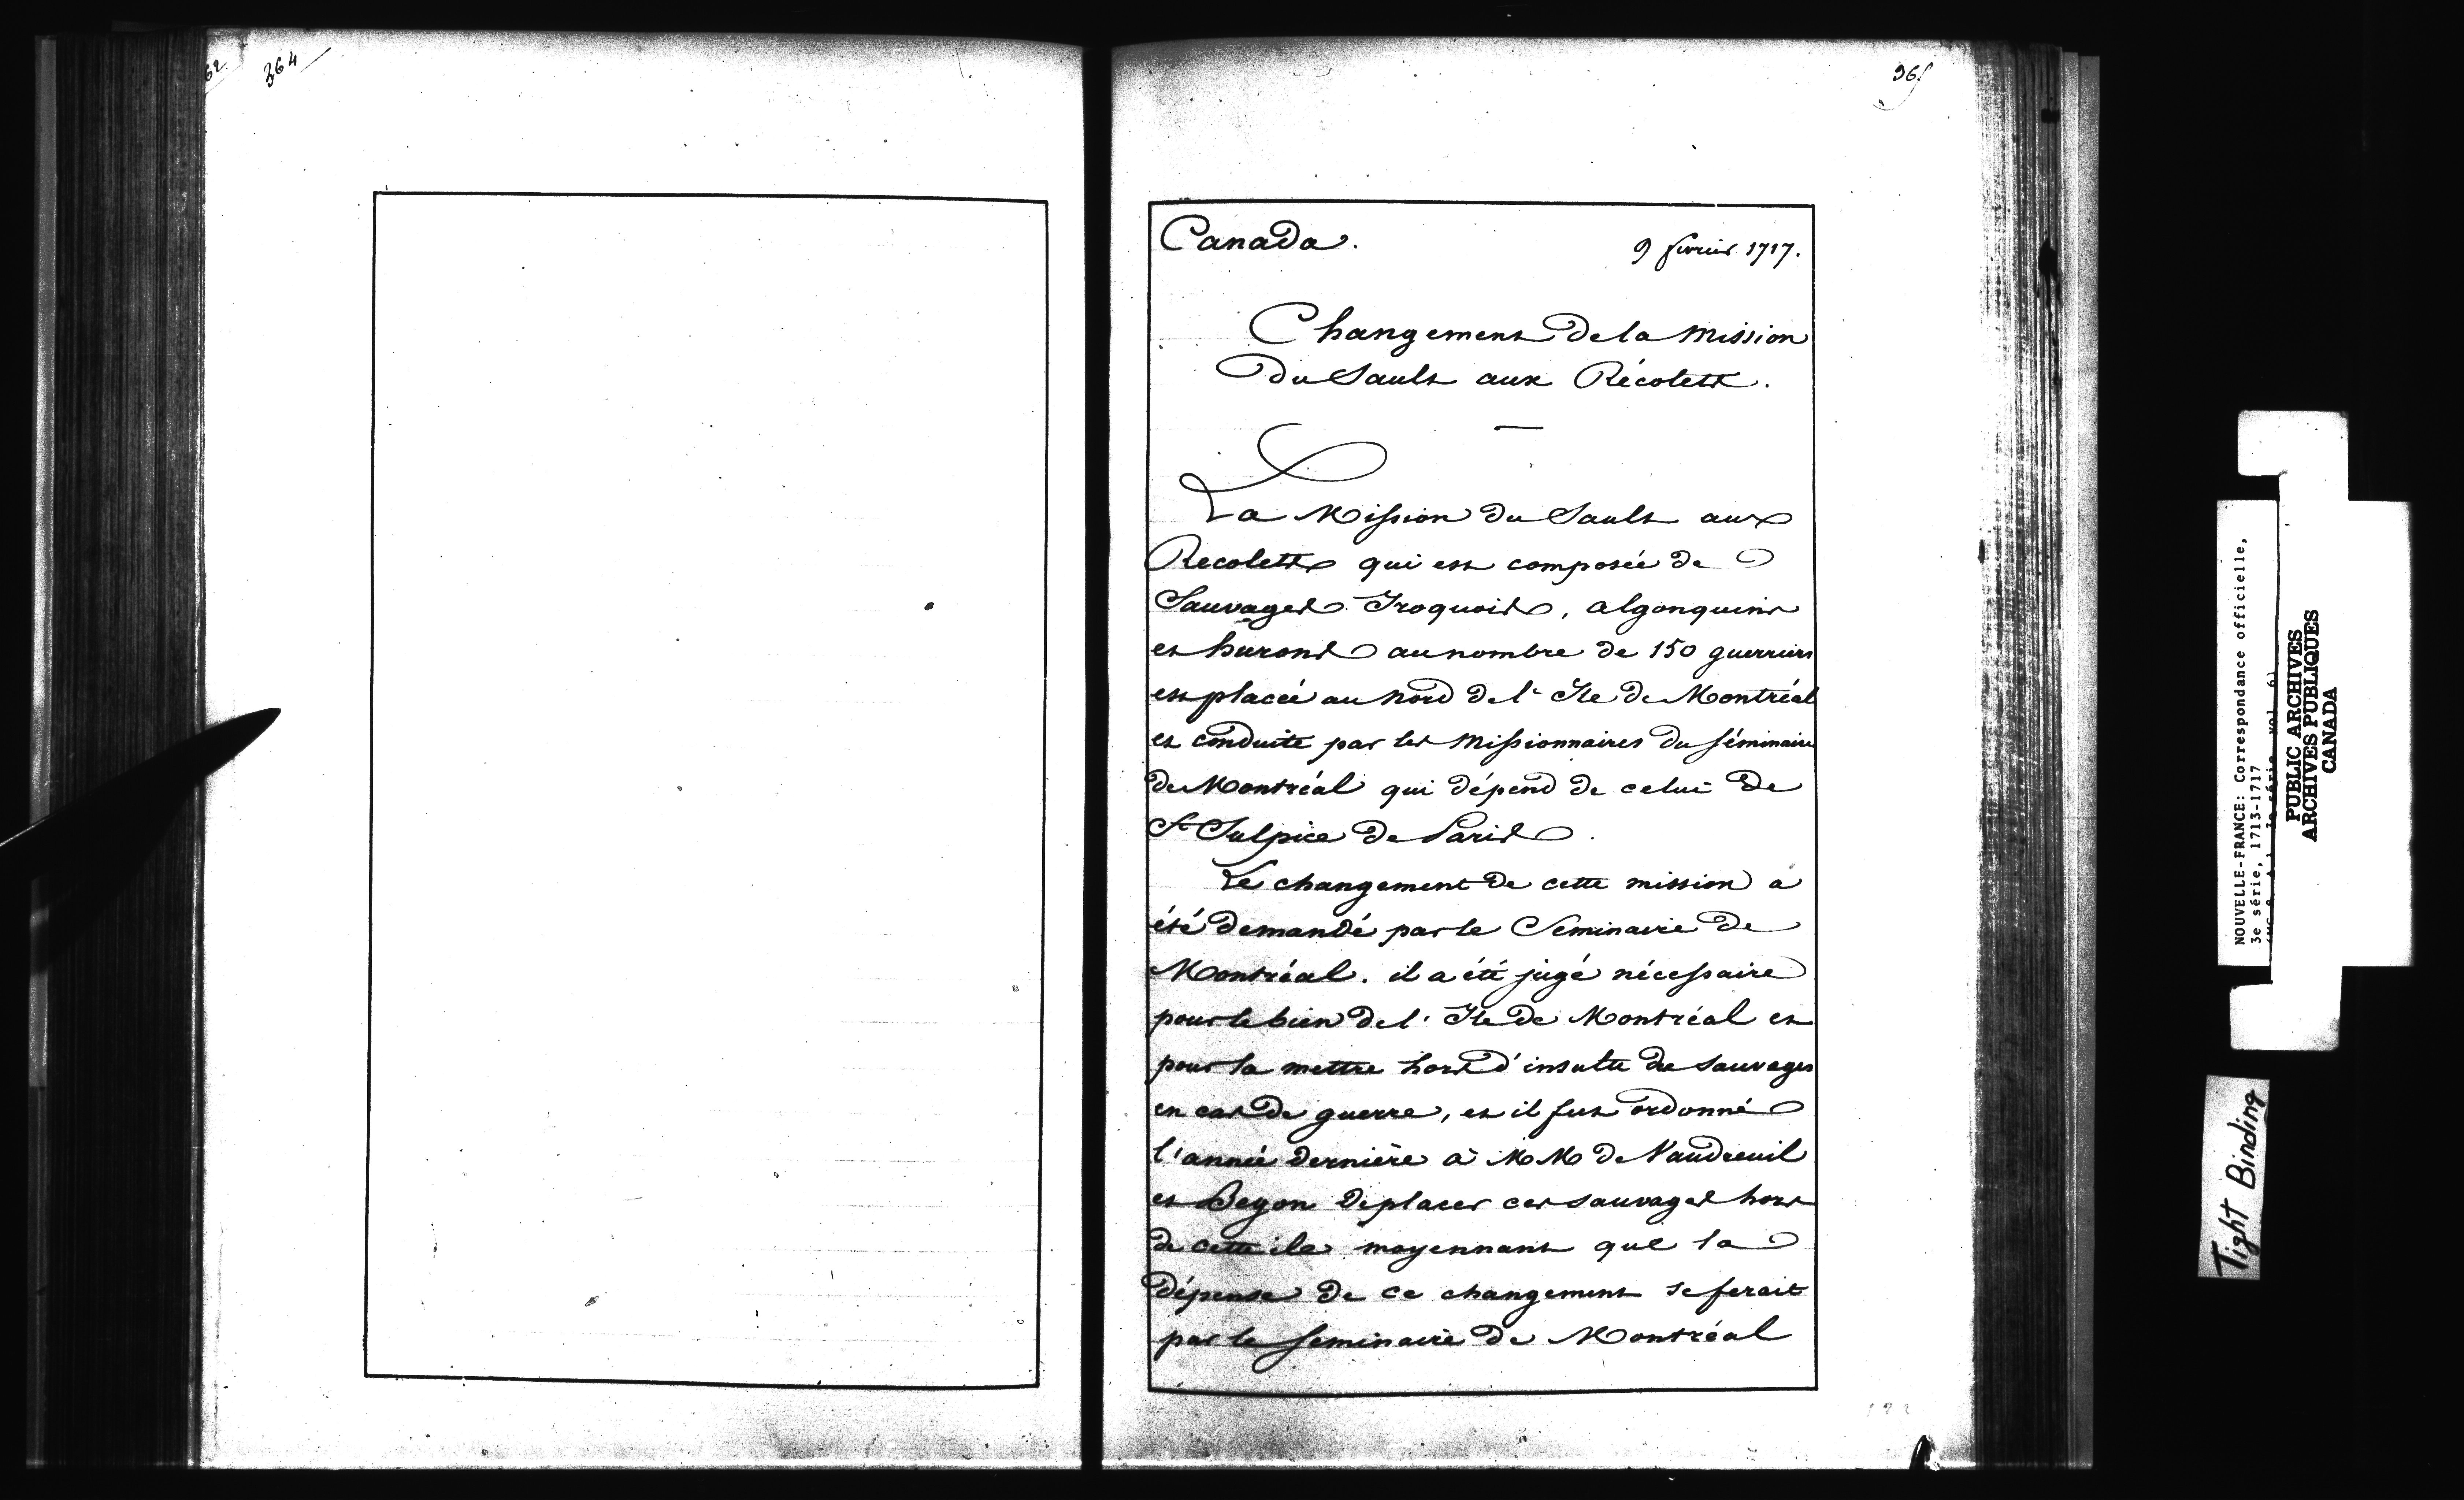 364
365
Canada. 9 février 1717.
Changement de la Mission
du Sault aux Récolets.
La Mission du Sault aux
Recolets qui est composée de
Sauvages Iroquois, algonquins
et hurons au nombre de 150 guerriers
est placée au nord de l'Ile de Montréal
et conduite par les Missionnaires du séminaire
de Montréal qui dépend de celui de
St Sulpice de Paris.
Le changement de cette mission a
été demandé par le Seminaire de
Montréal. il a été jugé nécessaire
pour le bien de l'Ile de Montréal et
pour la mettre hors d'insulte des sauvages
en cas de guerre, et il fut ordonné
l'année dernière à MM de Vaudreuil
et Begon de placer ces sauvages hors
de cette ile moyennant que la
dépense de ce changement se ferait
par le seminaire de Montréal
NOUVELLE-FRANCE: Correspondance officielle,
3e série, 1713-1717
PUBLIC ARCHIVES
ARCHIVES PUBLIQUES
CANADA
Tight Binding